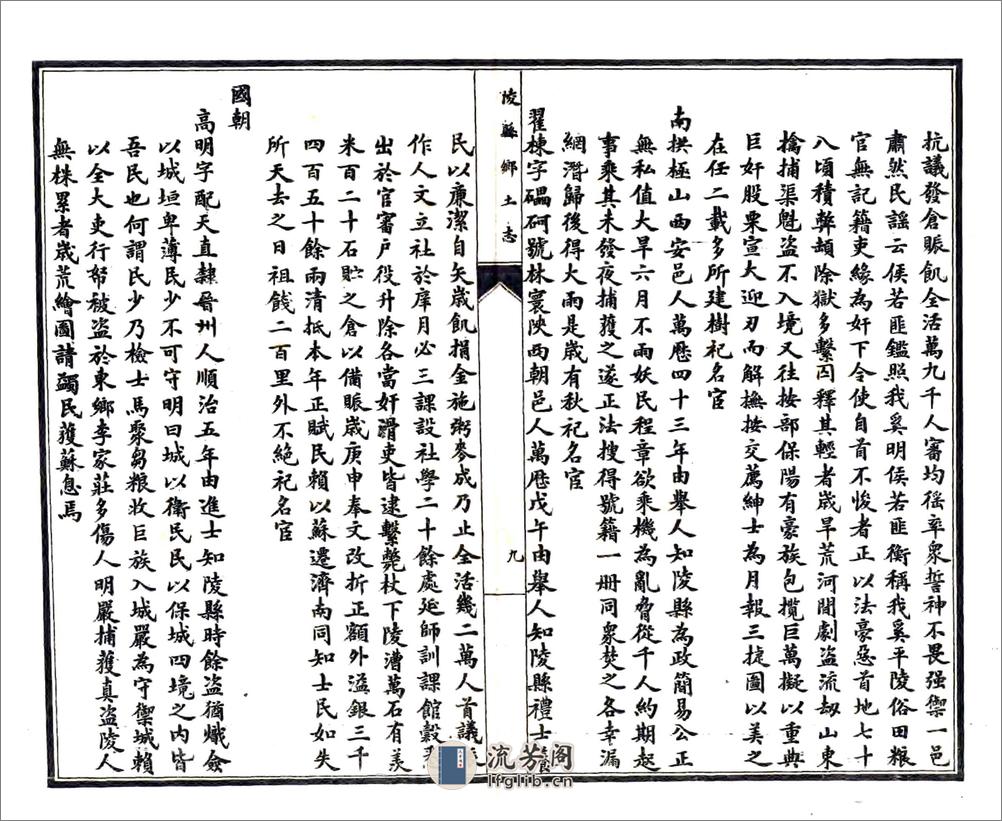 抗議發倉賑飢全活萬九千人審均徭率眾誓神不畏强禦一邑
肅然民謠云侯若匪鑑照我奚明侯若匪衡稱我奚平陵俗田粮
官無記籍吏緣為奸下令使自首不悛者正以法豪惡首地七十
八頃積弊頓除獄多繫囚釋其輕者歲旱荒河間劇盗流刼山東
擒捕渠魁盗不入境又往按部保陽有豪族包攬巨萬擬以重典
巨奸股栗宣大迎刃而解撫按交薦紳士為月報三捷圖以美之
在任二載多所建樹祀名宦
南拱極山西安邑人萬厯四十三年由舉人知陵縣為政簡易公正
無私值大旱六月不雨妖民程章欲乘機為亂脅從千人約期起
事乘其未發夜捕獲之遂正法搜得號籍一册同眾焚之各幸漏
網潛歸後得大雨是歲有秋祀名宦
翟棟字礧砢號林寰陝西朝邑人萬厯戊午由舉人知陵縣禮士
陵縣鄉土志
九
民以廉潔自矢歲飢捐金施粥麥成乃止全活幾二萬人首議
作人文立社於庠月必三課設社學二十餘處延師訓課館穀
出於官審户役升除各當奸滑吏皆逮繫斃杖下陵漕萬石有羡
米百二十石貯之倉以備賑歲庚申奉文改折正額外溢銀三千
四百五十餘兩清抵本年正賦民賴以蘇遷濟南同知士民如失
所天去之日祖餞二百里外不絶祀名宦
國朝
高明字配天直隷晉州人順治五年由進士知陵縣時餘盗猶熾僉
以城垣卑薄民少不可守明曰城以衛民民以保城四境之内皆
吾民也何謂民少乃檢士馬聚芻粮收巨族入城嚴為守禦城賴
以全大吏行帑被盗於東鄉李家莊多傷人明嚴捕獲真盗陵人
無株累者歲荒繪圖請蠲民獲蘇息焉
流芳阁
lfglib.cn